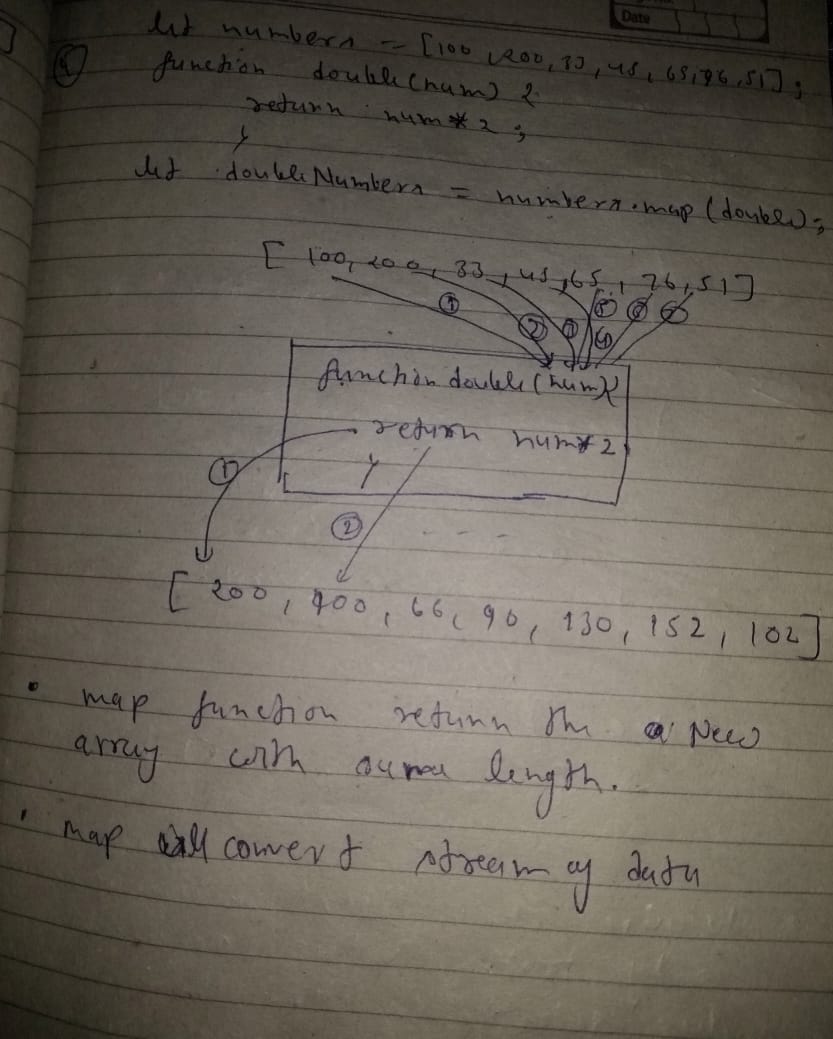 Date
let numbers = [100, 200, 33, 45, 65, 76, 51];
function double(num) {
return num * 2;
}
let doubleNumbers = numbers.map(double);
[100, 200, 33, 45, 65, 76, 51]
① ② ③ ④ ⑤ ⑥ ⑦
function double(num){
return num*2
}
①
② - - -
[200, 400, 66, 90, 130, 152, 102]
• map function return the a New
array with same length.
• map will convert stream of data